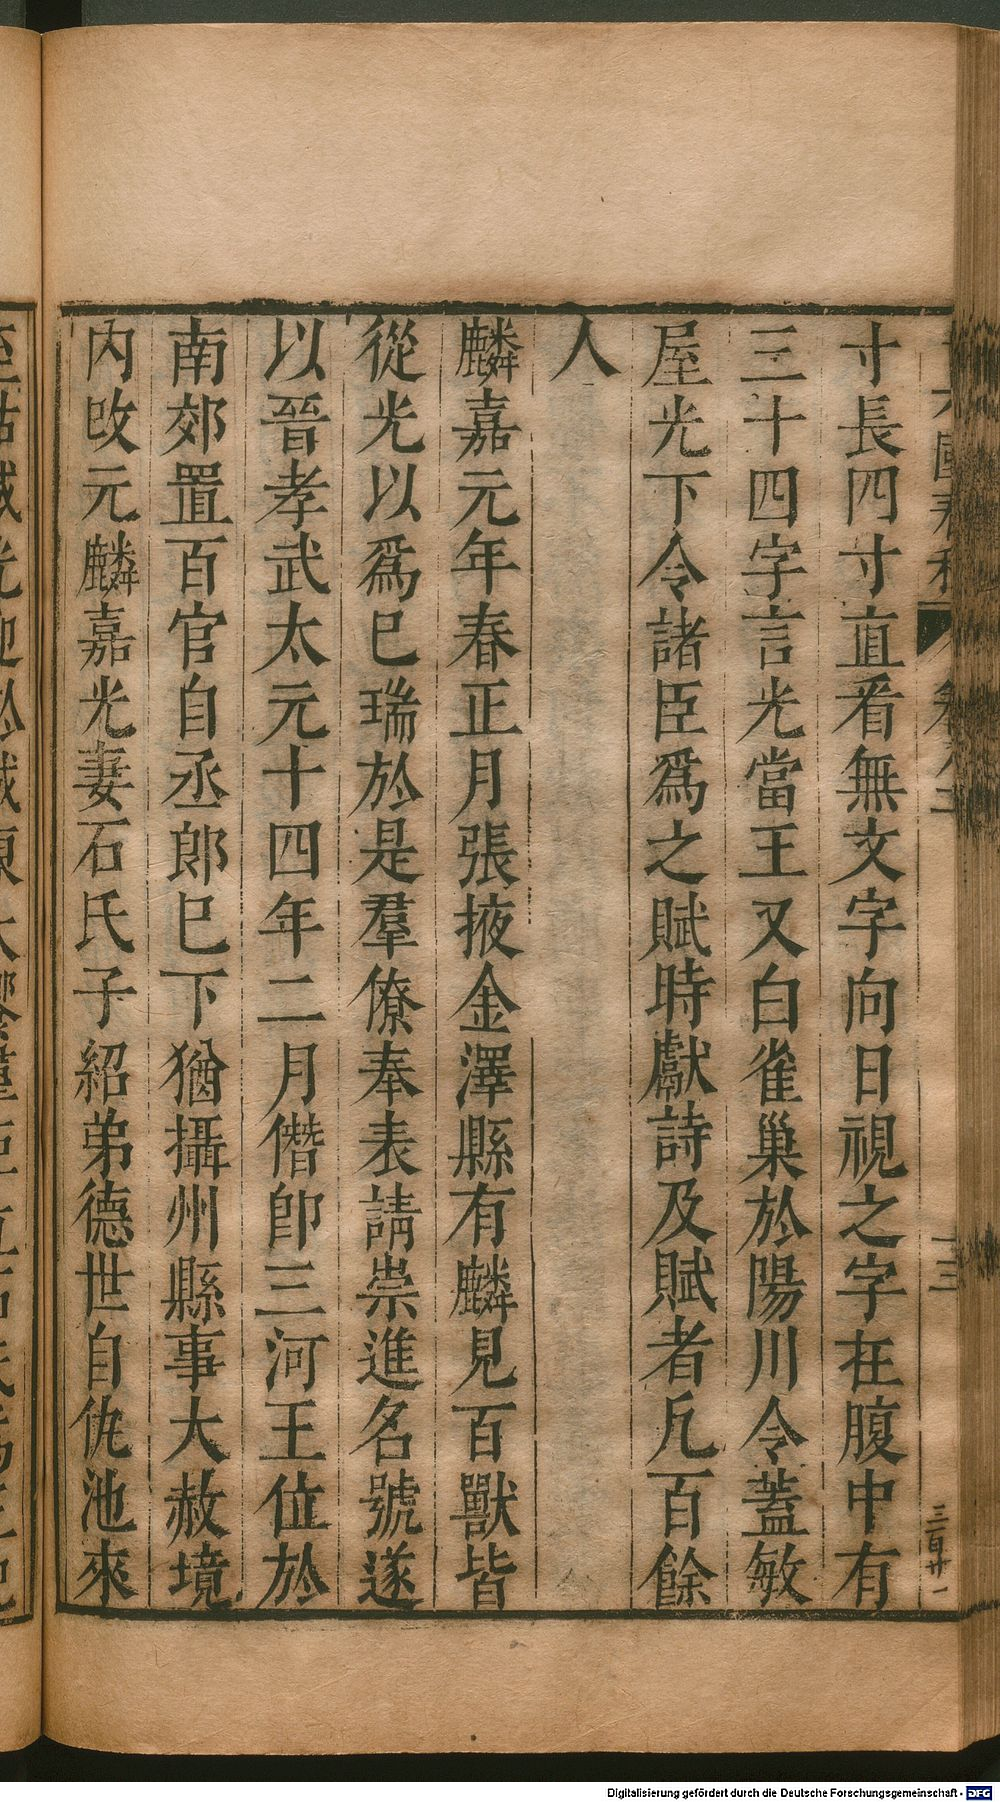 寸長四寸直看無文字向日視之字在腹中有
三十四字言光當王又白雀巢於陽川令蓋敏
屋光下令諸臣爲之賦時獻詩及賦者凡百餘
人
麟嘉元年春正月張掖金澤縣有麟見百獸皆
從光以爲巳瑞於是羣僚奉表請崇進名號遂
以晉孝武太元十四年二月僭卽三河王位於
南郊置百官自丞郎巳下猶攝州縣事大赦境
內改元麟嘉光妻石氏子紹弟德世自仇池來
三百廿一
Digitalisierung gefördert durch die Deutsche Forschungsgemeinschaft - DFG